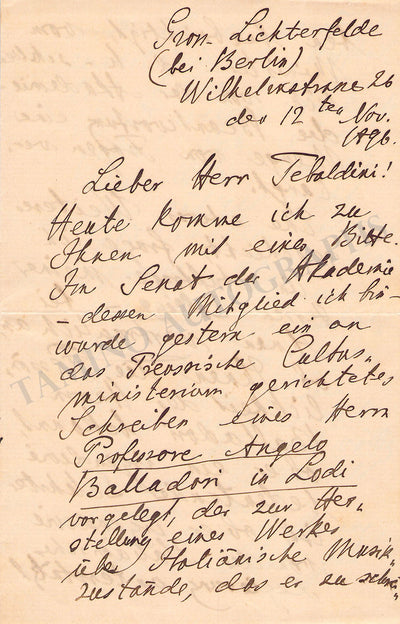 Gross-Lichterfelde
(bei Berlin)
Wilhelmstrasse 26
den 12ten Nov.
1896.
Lieber Herr Tebaldini!
Heute komme ich zu
Ihnen mit einer Bitte.
Im Senat der Akademie
- dessen Mitglied ich bin -
wurde gestern ein an
das Preussische Cultus-
ministerium gerichtetes
Schreiben eines Herrn
Professore Angelo
Balladori in Lodi
vorgelegt, der zur Her-
stellung eines Werkes
über Italiänische Musik-
zustände, das er zu schrei-
TAMINO AUTOGRAPHS